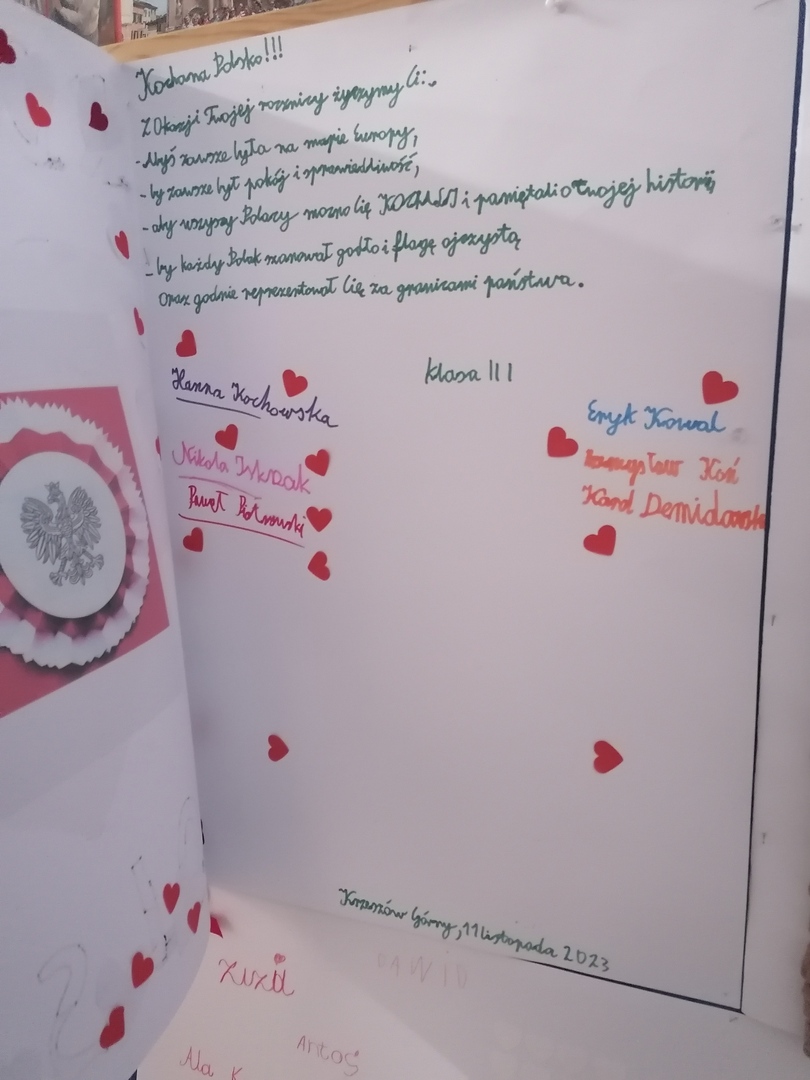 Kochana Polsko!!!
Z Okazji Twojej rocznicy życzymy Ci:
- Abyś zawsze była na mapie Europy,
- by zawsze był pokój i sprawiedliwość,
- aby wszyscy Polacy mocno Cię KOCHALI i pamiętali o twojej historii
- by każdy Polak szanował godło i flagę ojczystą
Oraz godnie reprezentował Cię za granicami państwa.
klasa III
Hanna Kochowska
Eryk Kowal
Nikola
Przemysław Koń
Paweł Piotrowski
Karol
Krzeszów Górny, 11 listopada 2023
Zuzia
DAWID
Antoś
Ala K